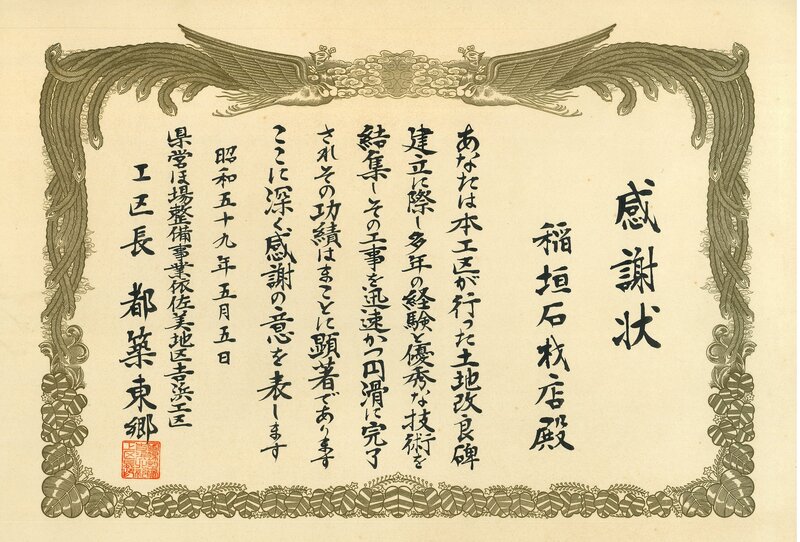 感謝状
稲垣石材店殿
あなたは本工区が行った土地改良碑
建立に際し多年の経験と優秀な技術を
結集しその工事を迅速かつ円滑に完了
されその功績はまことに顕著であります
ここに深く感謝の意を表します
昭和五十九年五月五日
県営ほ場整備事業依佐美地区吉浜工区
工区長 都築東郷